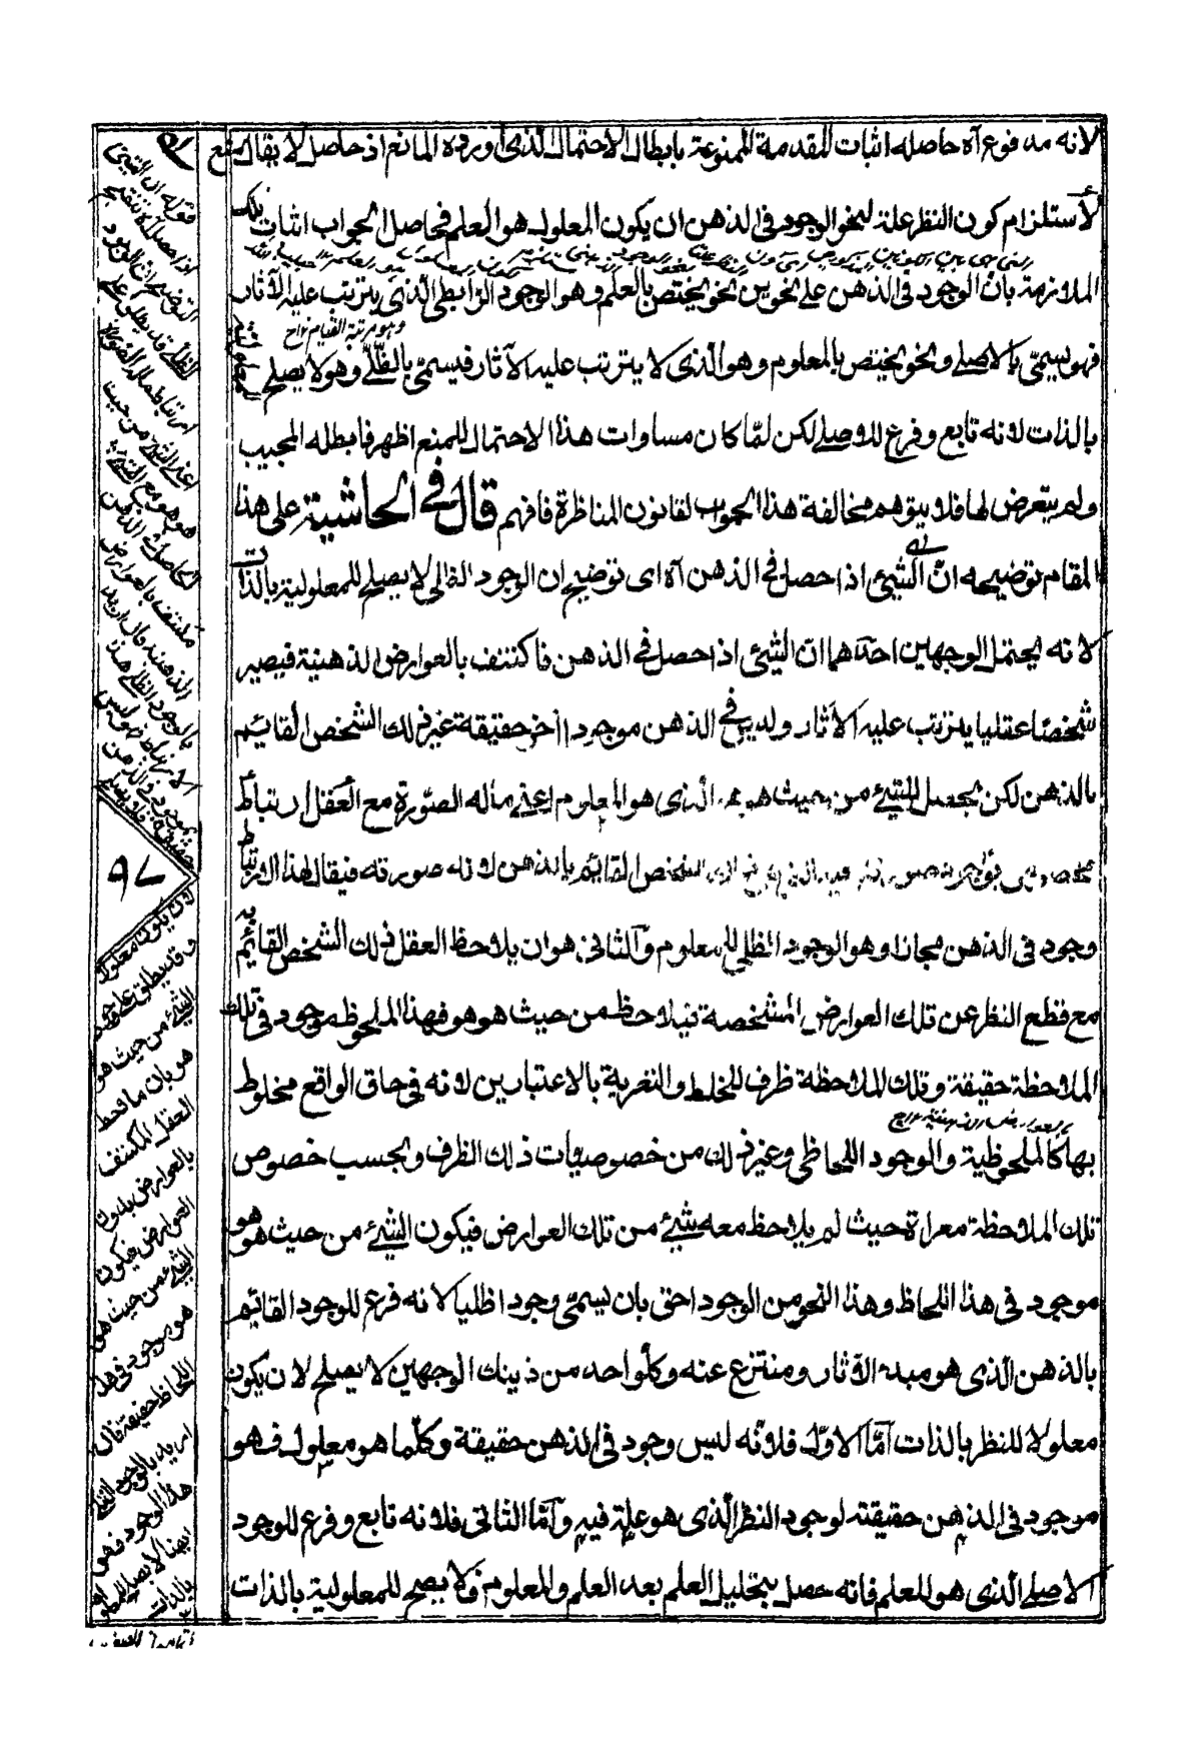 لانه مدفوع آه حاصله اثبات المقدمة الممنوعة بابطال الاحتمال الذى اورده المانع اذ حاصل لا يقال منع
لاستلزام كون النظر علة لنحو الوجود فى الذهن ان يكون المعلول هو العلم فحاصل الجواب اثبات تلك
الملازمة بان الوجود فى الذهن على نحوين نحو يختص بالعلم وهو الوجود الرابطى الذى يترتب عليه الآثار
وهو مرتبة القيام
فهو يسمى بالاصلى ونحو يختص بالمعلوم وهو الذى لا يترتب عليه الآثار فيسمى بالظلى وهو لا يصلح
بالذات لانه تابع وفرع للاصلى لكن لما كان مساوات هذا الاحتمال للمنع اظهر فابطله المجيب
ولم يتعرض لها فلا يتوهم مخالفة هذا الجواب لقانون المناظرة فافهم قال فى الحاشية على هذا
المقام توضيحه ان الشيئ اذا حصل فى الذهن آه اى توضيح ان الوجود الظلى لا يصلح للمعلولية بالذات
لانه يحتمل الوجهين احدهما ان الشيئ اذا حصل فى الذهن فاكتنف بالعوارض الذهنية فيصير
شخصا عقليا يترتب عليه الآثار وليس فى الذهن موجود آخر حقيقة غير ذلك الشخص القائم
بالذهن لكن يحصل للشيئ من حيث هو هو الذى هو المعلوم اعنى ماله الصورة مع العقل ارتباط
الشخص القائم بالذهن لانه صورته فيقال لهذا الارتباط
وجود فى الذهن مجازا وهو الوجود الظلى للمعلوم والثانى هو ان يلاحظ العقل ذلك الشخص القائم به
مع قطع النظر عن تلك العوارض المشخصة فيلاحظ من حيث هو هو فهذا الملحوظ موجود فى تلك
الملاحظة حقيقة وتلك الملاحظة ظرف للخلط والتعرية بالاعتبارين لانه فى حاق الواقع مخلوط
بها كالملحوظية والوجود اللحاظى وغير ذلك من خصوصيات ذلك الظرف وبحسب خصوص
تلك الملاحظة معراة حيث لم يلاحظ معه شيئ من تلك العوارض فيكون الشيئ من حيث هو هو
موجود فى هذا اللحاظ وهذا النحو من الوجود احق بان يسمى وجودا ظليا لانه فرع للوجود القائم
بالذهن الذى هو مبدء الآثار ومنتزع عنه وكل واحد من ذينك الوجهين لا يصلح لان يكون
معلولا للنظر بالذات اما الاول فلانه ليس وجود فى الذهن حقيقة وكلما هو معلول فهو
موجود فى الذهن حقيقته لوجود النظر الذى هو علة فيه واما الثانى فلانه تابع وفرع للوجود
الاصلى الذى هو للعلم فانه حصل بتحليل العلم بعد العلم والمعلوم فلا يصح للمعلولية بالذات
قوله ان الشيئ
اذا حصل
اعنى الشيئ من حيث
هو هو مع الشخص
الحاصل فى الذهن
مكتنف بالعوارض
الذهنية فان اريد
بالوجود الظلى هذا
الارتباط فهو ليس
بموجود فى الذهن
حقيقة فلا يصلح
٩٧
لان يكون معلولا
وقد يطلق على وجود
الشيئ من حيث هو
هو بان يلاحظ
العقل المكتنف
بالعوارض بدون
العوارض فيكون
الشيئ من حيث هو
هو موجود فى هذا
اللحاظ حقيقة فان
اريد بالوجود الظلى
هذا الوجود فهو
ايضا لا يصلح للمعلولية
بالذات